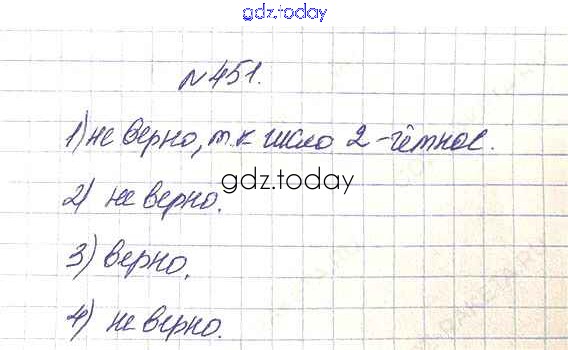 gdz.today
№451.
1) не верно, т.к число 2 - чётное.
gdz.today
2) не верно.
3) верно.
4) не верно.